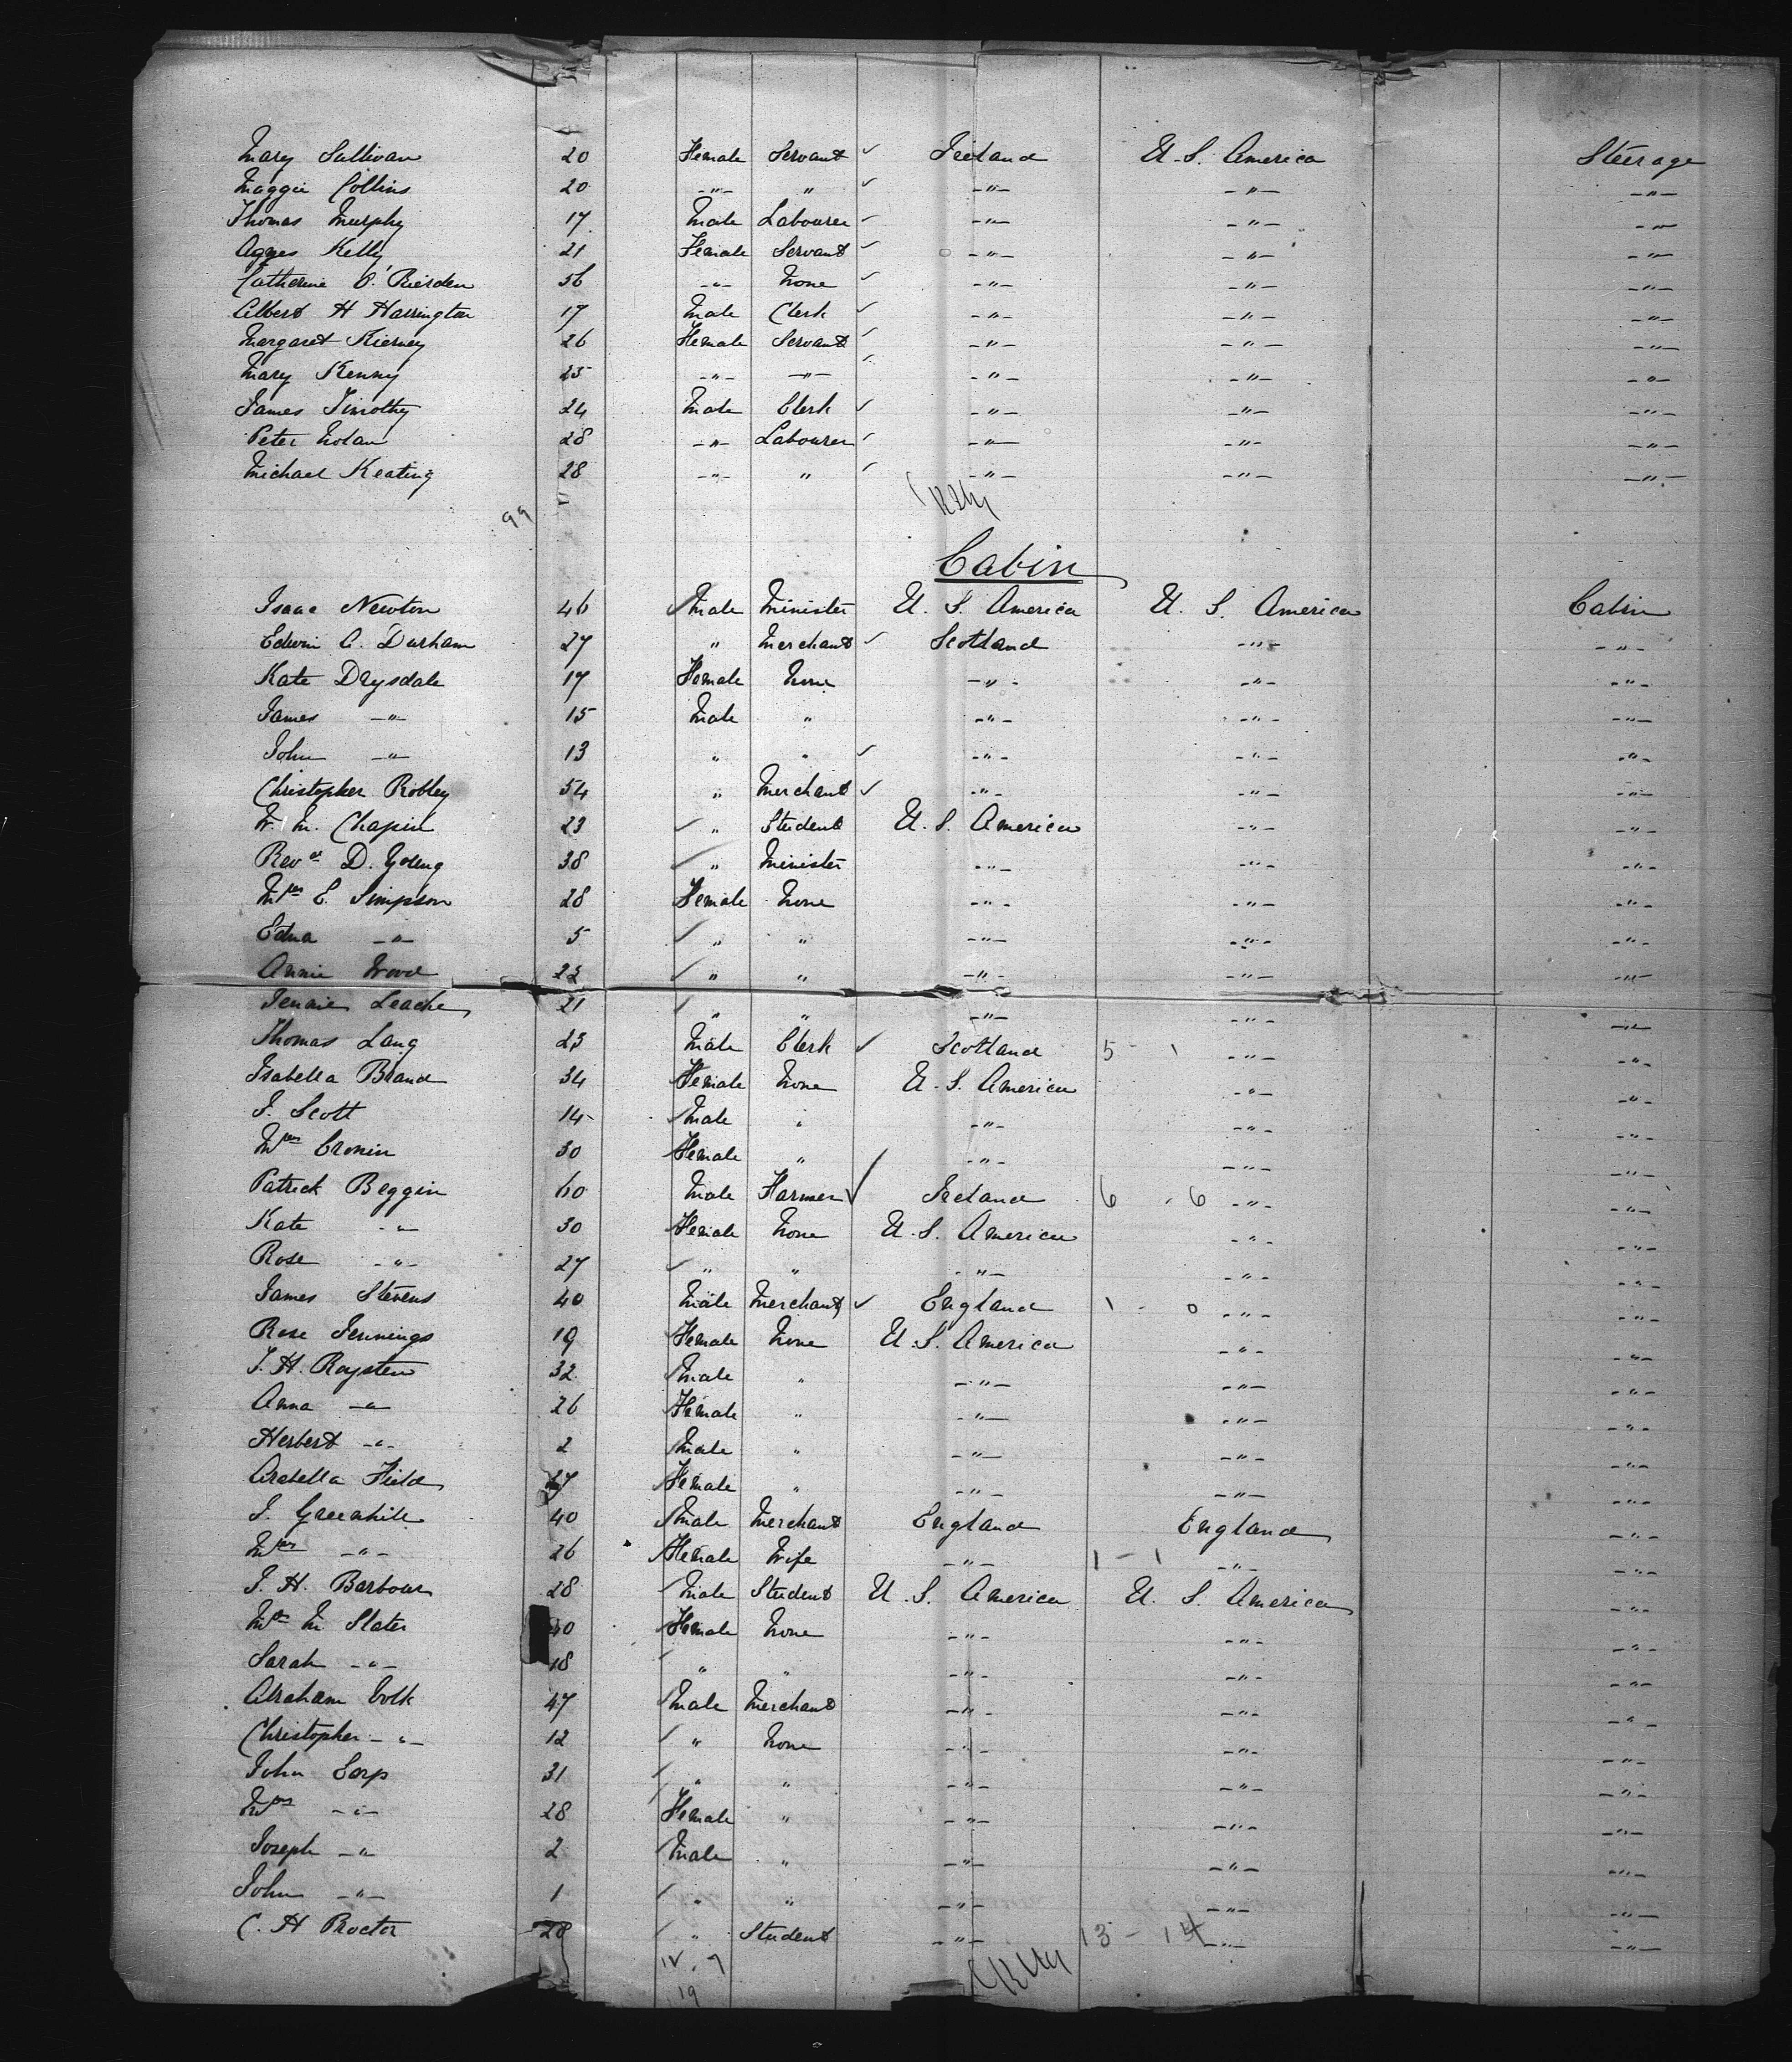 Mary Sullivan 20 Female Servant ✓ Ireland U.S. America Steerage
Maggie Collins 20 -"- " ✓ -"- -"- -"-
Thomas Murphy 17 Male Labourer ✓ -"- -"- -"-
Agnes Kelly 21 Female Servant ✓ -"- -"- -"-
Catherine O'Rierden 56 -"- None ✓ -"- -"- -"-
Albert H Harrington 17 Male Clerk ✓ -"- -"- -"-
Margaret Kierney 26 Female Servant ✓ -"- -"- -"-
Mary Kenny 25 -"- -"- ✓ -"- -"- -"-
James Timothy 24 Male Clerk ✓ -"- -"- -"-
Peter Nolan 28 -"- Labourer ✓ -"- -"- -"-
Michael Keating 28 -"- " ✓ -"- -"- -"-
99
Cabin
Isaac Newton 46 ✓ Male Minister U.S. America U.S. America Cabin
Edwin A. Durham 27 " Merchant ✓ Scotland -"- -"-
Kate Drysdale 17 Female None -"- -"- -"-
James -"- 15 Male " -"- -"- -"-
John -"- 13 " " ✓ -"- -"- -"-
Christopher Robley 54 " Merchant ✓ -"- -"- -"-
W. M. Chapin 23 ✓ " Student U.S. America -"- -"-
Revd D. Young 38 ✓ " Minister -"- -"- -"-
Mrs E. Simpson 28 Female None -"- -"- -"-
Edna -"- 5 ✓ " " -"- -"- -"-
Annie Wood 22 ✓ " " -"- -"- -"-
Jennie Leache 21 ✓ " " -"- -"- -"-
Thomas Lang 23 Male Clerk ✓ Scotland 5 - 1 -"- -"-
Isabella Brand 34 ✓ Female None U.S. America -"- -"-
J. Scott 14 ✓ Male " -"- -"- -"-
Mrs Cronin 30 ✓ Female " -"- -"- -"-
Patrick Beggin 60 Male Farmer ✓ Ireland 6 - 6 -"- -"-
Kate -"- 30 ✓ Female None U.S. America -"- -"-
Rose -"- 27 ✓ " " -"- -"- -"-
James Stevens 40 Male Merchant ✓ England 1 - 0 -"- -"-
Rose Jennings 19 ✓ Female None U.S. America -"- -"-
J. H. Roysten 32 ✓ Male " -"- -"- -"-
Anna -"- 26 ✓ Female " -"- -"- -"-
Herbert -"- 2 ✓ Male " -"- -"- -"-
Arabella Field 27 ✓ Female " -"- -"- -"-
J. Greenhill 40 ✓ Male Merchant England England -"-
Mrs -"- 26 ✓ Female Wife -"- 1 - 1 -"- -"-
J. H. Barbour 28 ✓ Male Student U.S. America U.S. America -"-
Mrs M. Slater 40 ✓ Female None -"- -"- -"-
Sarah -"- 18 ✓ " " -"- -"- -"-
Abraham Colk 47 ✓ Male Merchant -"- -"- -"-
Christopher -"- 12 ✓ " None -"- -"- -"-
John Earp 31 ✓ " " -"- -"- -"-
Mrs -"- 28 ✓ Female " -"- -"- -"-
Joseph -"- 2 ✓ Male " -"- -"- -"-
John -"- 1 ✓ " " -"- -"- -"-
C. H Proctor 28 ✓ " Student -"- 13 - 14 -"- -"-
19